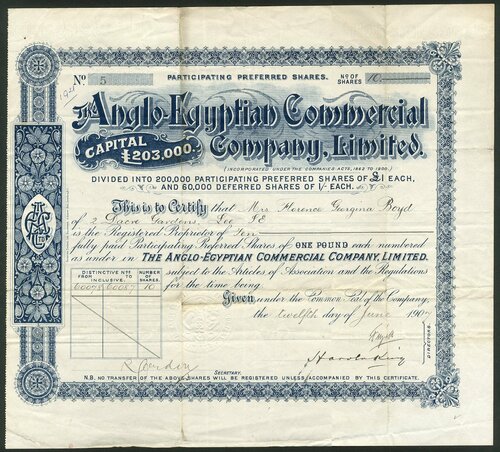 No 5
PARTICIPATING PREFERRED SHARES.
No OF SHARES 10
The Anglo-Egyptian Commercial
Company, Limited.
CAPITAL £203,000.
(INCORPORATED UNDER THE COMPANIES ACTS, 1862 TO 1900.)
DIVIDED INTO 200,000 PARTICIPATING PREFERRED SHARES OF £1 EACH,
AND 60,000 DEFERRED SHARES OF 1/- EACH.
This is to Certify that Mrs Florence Georgina Boyd
of 2 Dacre Gardens, Lee SE
is the Registered Proprietor of Ten
fully paid Participating Preferred Shares of ONE POUND each numbered
as under in THE ANGLO-EGYPTIAN COMMERCIAL COMPANY, LIMITED.
subject to the Articles of Association and the Regulations
for the time being
DISTINCTIVE Nos
FROM INCLUSIVE. TO
NUMBER OF SHARES.
10
Given under the Common Seal of the Company,
the twelfth day of June 1907
Harold King
DIRECTORS.
SECRETARY.
N.B. NO TRANSFER OF THE ABOVE SHARES WILL BE REGISTERED UNLESS ACCOMPANIED BY THIS CERTIFICATE.